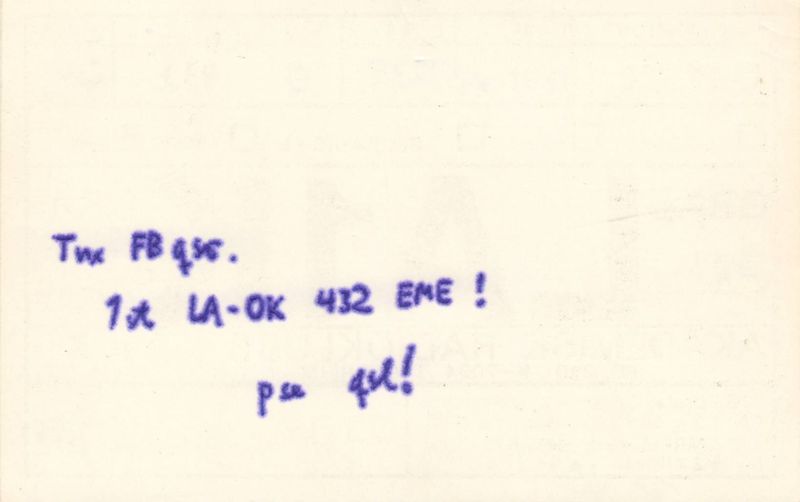 Tnx FB qso.
1st LA-OK 432 EME !
pse qsl!